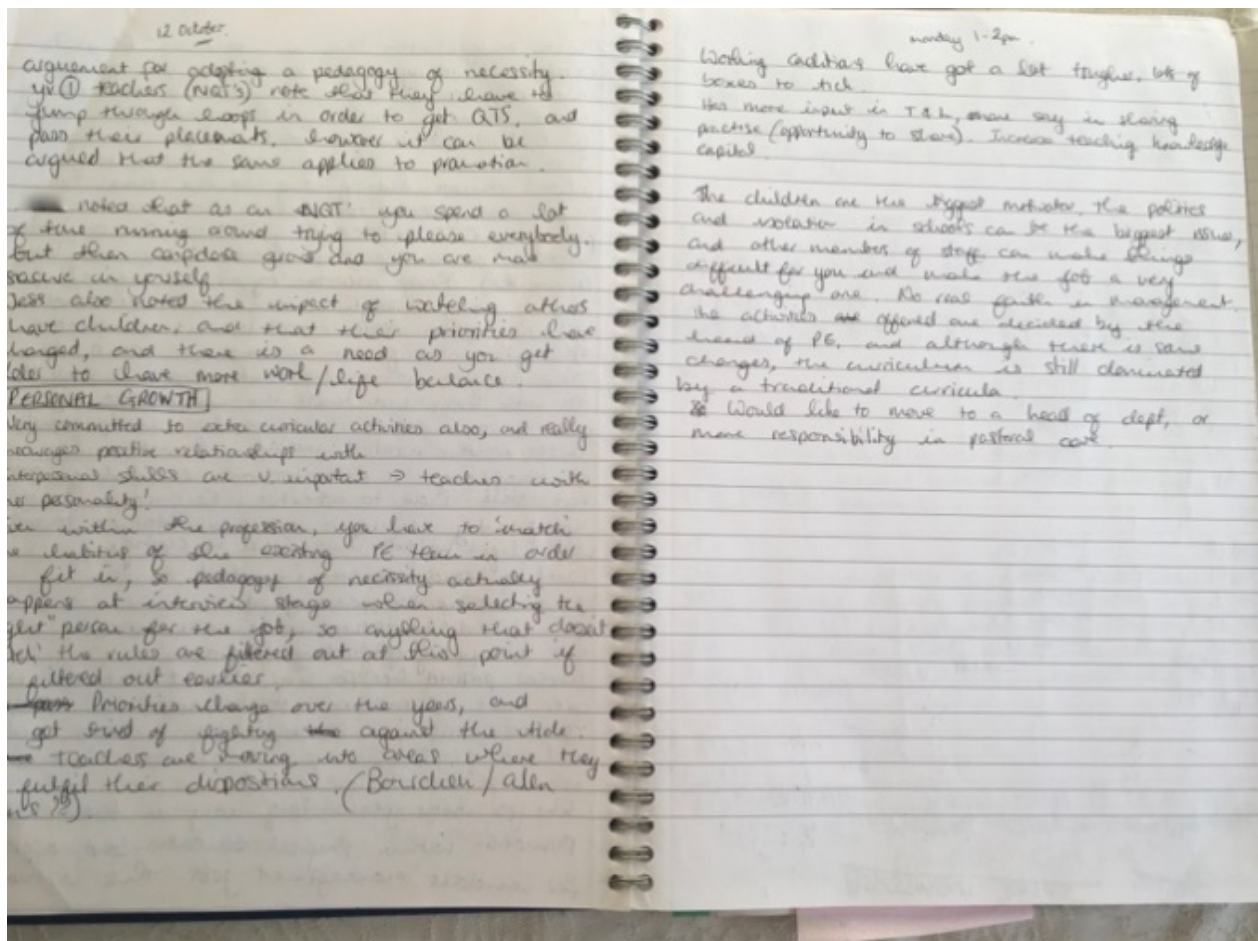 12 October.
arguement for adopting a pedagogy of necessity.
yr ① teachers (NQT's) note that they have to
jump through hoops in order to get QTS, and
pass their placements, however it can be
argued that the same applies to promotion.
noted that as an 'NQT' you spend a lot
of time running around trying to please everybody.
but then confidence grows and you are more
in yourself
also noted the impact of watching others
have children, and that their priorities have
changed, and there is a need as you get
older to have more work/life balance.
PERSONAL GROWTH
Very committed to extra curricular activities also, and really
encourages positive relationships with
interpersonal skills are v. important → teaches with
personality!
within the profession, you have to 'match'
habitus of the existing PE team in order
fit in, so pedagogy of necissity actually
happens at interview stage when selecting the
"right" person for the job, so anything that doesn't
the rules are filtered out at this point if
filtered out earlier.
Priorities change over the years, and
get tired of fighting against the tide.
Teachers are moving into areas where they
fulfil their dispositions. (
monday 1-2pm.
Working conditions have got a lot tougher, lots of
boxes to tick.
Has more input in T&L, more say in sharing
practise (opportunity to share). Increase teaching knowledge
capital.
The children are the biggest motivator. The politics
and isolation in schools can be the biggest issue,
and other members of staff can make things
difficult for you and make the job a very
challenging one. No real faith in management.
The activities offered are decided by the
head of PE, and although there is some
changes, the curriculum is still dominated
by a traditional curricula.
Would like to move to a head of dept, or
more responsibility in pastoral care.